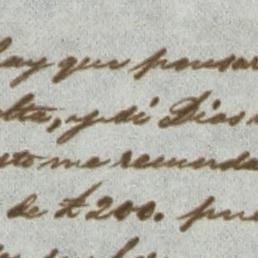 hay que pensar
y si Dios
esto me recuerda
de £200. pue